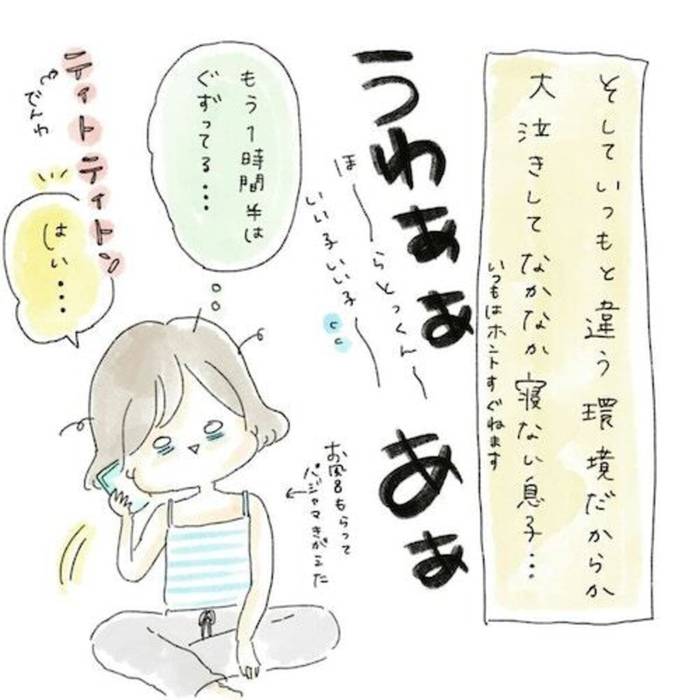 そしていつもと違う環境だからか
大泣きしてなかなか寝ない息子…
いつもはホントすぐねます
うわぁぁ
あぁ
ほ〜らとっくん〜
いい子いい子〜
もう1時間半は
ぐずってる…
お風呂もらって
パジャマきがえた
ティトティトン
でんわ
はい…